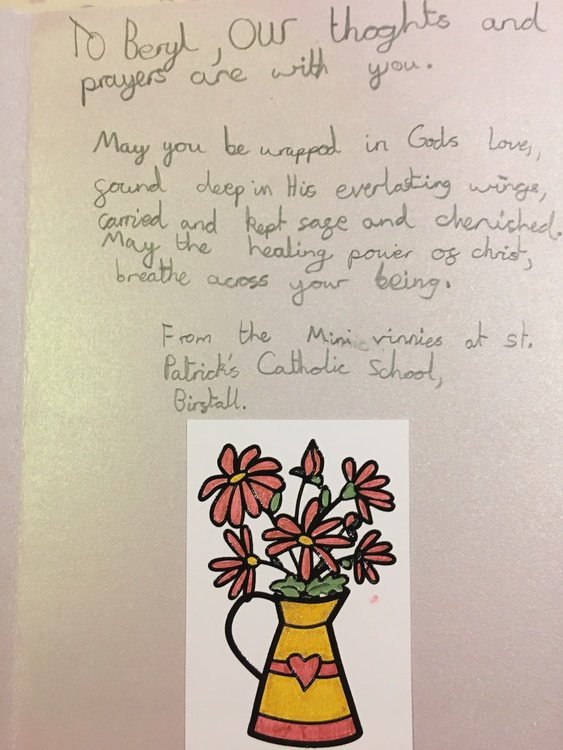 To Beryl, Our thoghts and
prayers are with you.
May you be wrapped in Gods Love,
found deep in His everlasting wings,
carried and kept safe and cherished.
May the healing power of christ,
breathe across your being.
From the Mini vinnies at St.
Patrick's Catholic School,
Birstall.